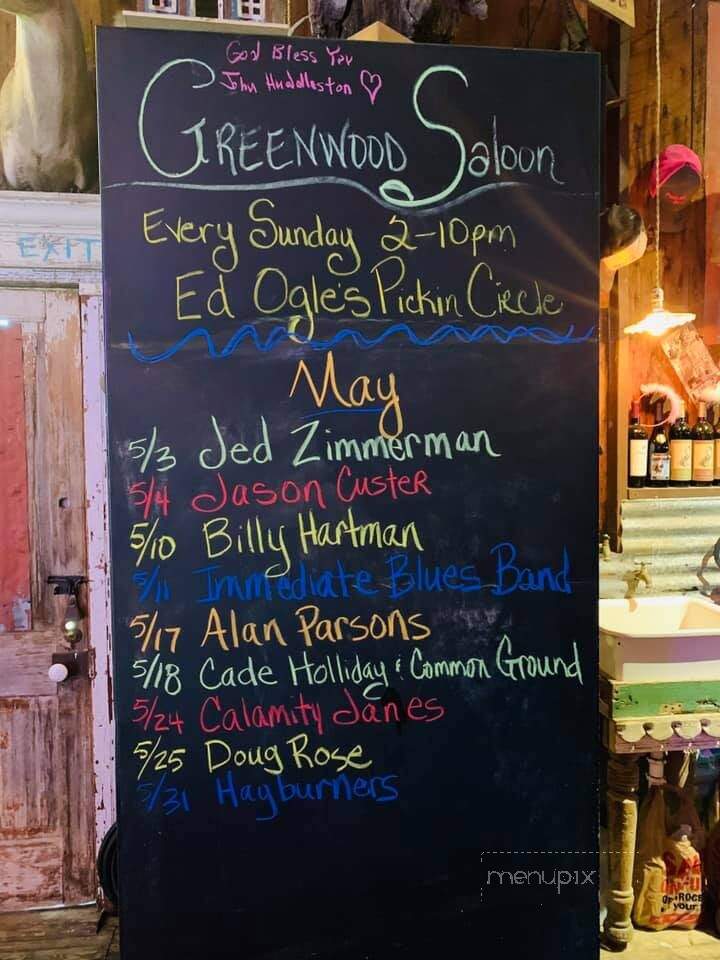 God Bless You
John Huddleston
GREENWOOD Saloon
Every Sunday 2-10pm
EXIT
Ed Ogle's Pickin Circle
May
5/3 Jed Zimmerman
5/4 Jason Custer
5/10 Billy Hartman
5/11 Immediate Blues Band
5/17 Alan Parsons
5/18 Cade Holliday & Common Ground
5/24 Calamity Janes
5/25 Doug Rose
5/31 Hayburners
menupix